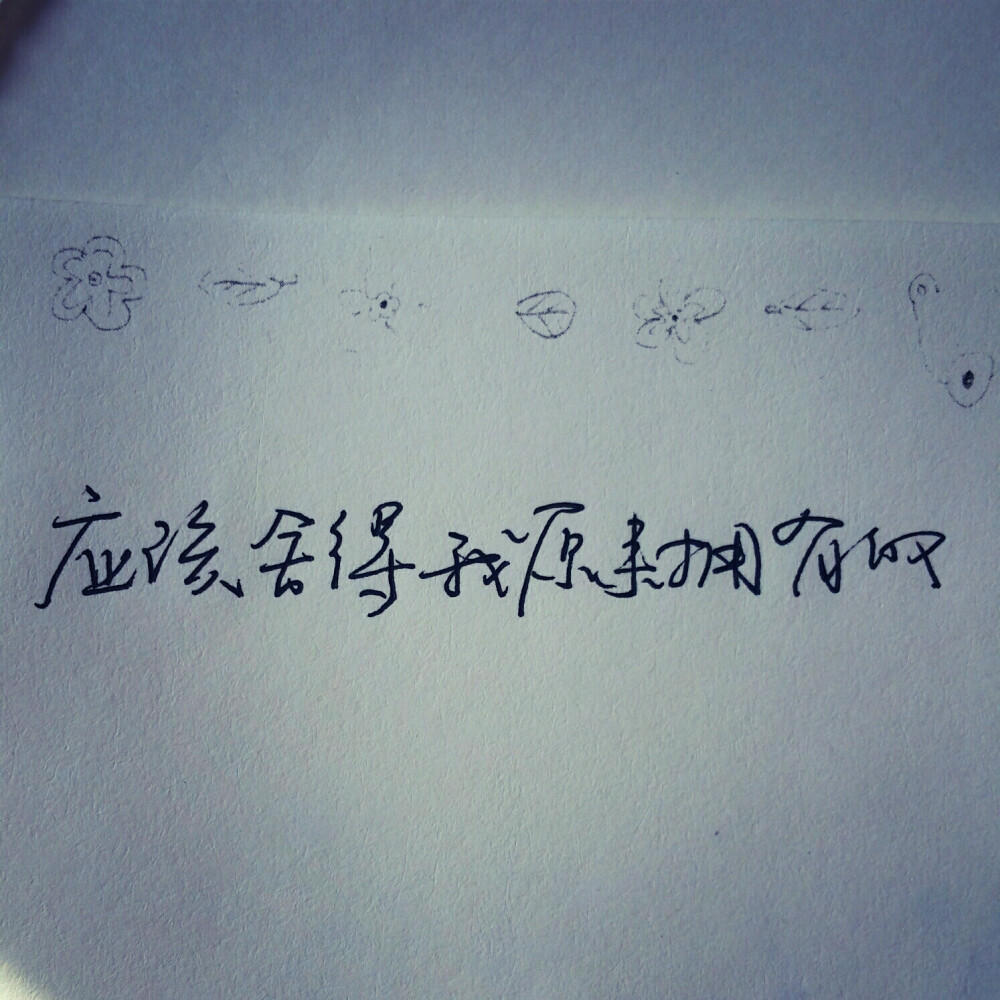 应该舍得我原来拥有的